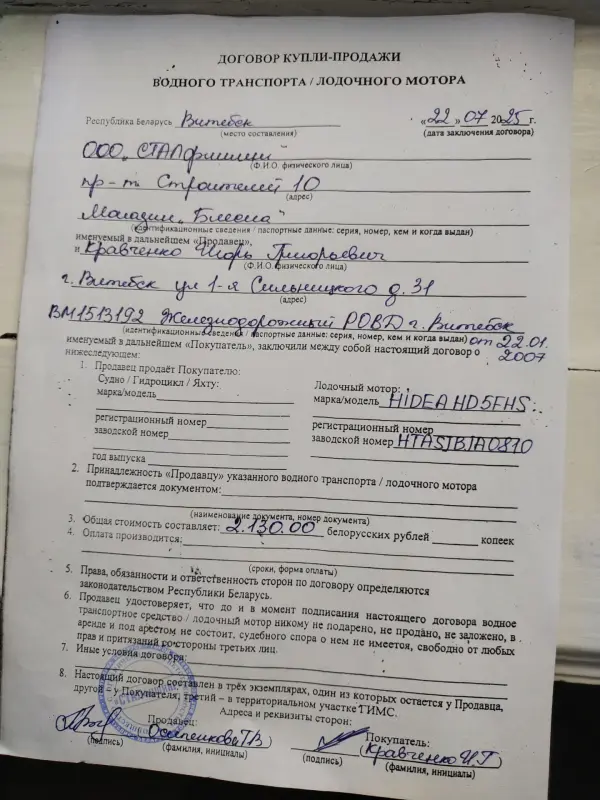 ДОГОВОР КУПЛИ-ПРОДАЖИ
ВОДНОГО ТРАНСПОРТА / ЛОДОЧНОГО МОТОРА
Республика Беларусь Витебск «22» 07 2025 г.
(место составления) (дата заключения договора)
ООО
(Ф.И.О. физического лица)
пр-т Строителей 10
(адрес)
Магазин
(идентификационные сведения / паспортные данные: серия, номер, кем и когда выдан)
именуемый в дальнейшем «Продавец»,
и Кравченко Игорь Григорьевич
(Ф.И.О. физического лица)
г. Витебск ул 1-я д. 31
(адрес)
ВМ1513192 Железнодорожный РОВД г. Витебск
(идентификационные сведения / паспортные данные: серия, номер, кем и когда выдан) от 22.01.
именуемый в дальнейшем «Покупатель», заключили между собой настоящий договор о 2007
нижеследующем:
1. Продавец продаёт Покупателю:
Судно / Гидроцикл / Яхту: Лодочный мотор:
марка/модель марка/модель HIDEA HD5FHS
регистрационный номер регистрационный номер
заводской номер заводской номер
год выпуска
2. Принадлежность «Продавцу» указанного водного транспорта / лодочного мотора
подтверждается документом:
(наименование документа, номер документа)
3. Общая стоимость составляет: 2.130.00 белорусских рублей копеек
4. Оплата производится:
(сроки, форма оплаты)
5. Права, обязанности и ответственность сторон по договору определяются
законодательством Республики Беларусь.
6. Продавец удостоверяет, что до и в момент подписания настоящего договора водное
транспортное средство / лодочный мотор никому не подарено, не продано, не заложено, в
аренде и под арестом не состоит, судебного спора о нем не имеется, свободно от любых
прав и притязаний со стороны третьих лиц.
7. Иные условия договора:
8. Настоящий договор составлен в трёх экземплярах, один из которых остается у Продавца,
другой – у Покупателя, третий – в территориальном участке ГИМС.
Адреса и реквизиты сторон:
Продавец: Покупатель:
Осипенкова Т.В Кравченко И.Г
(подпись) (фамилия, инициалы) (подпись) (фамилия, инициалы)